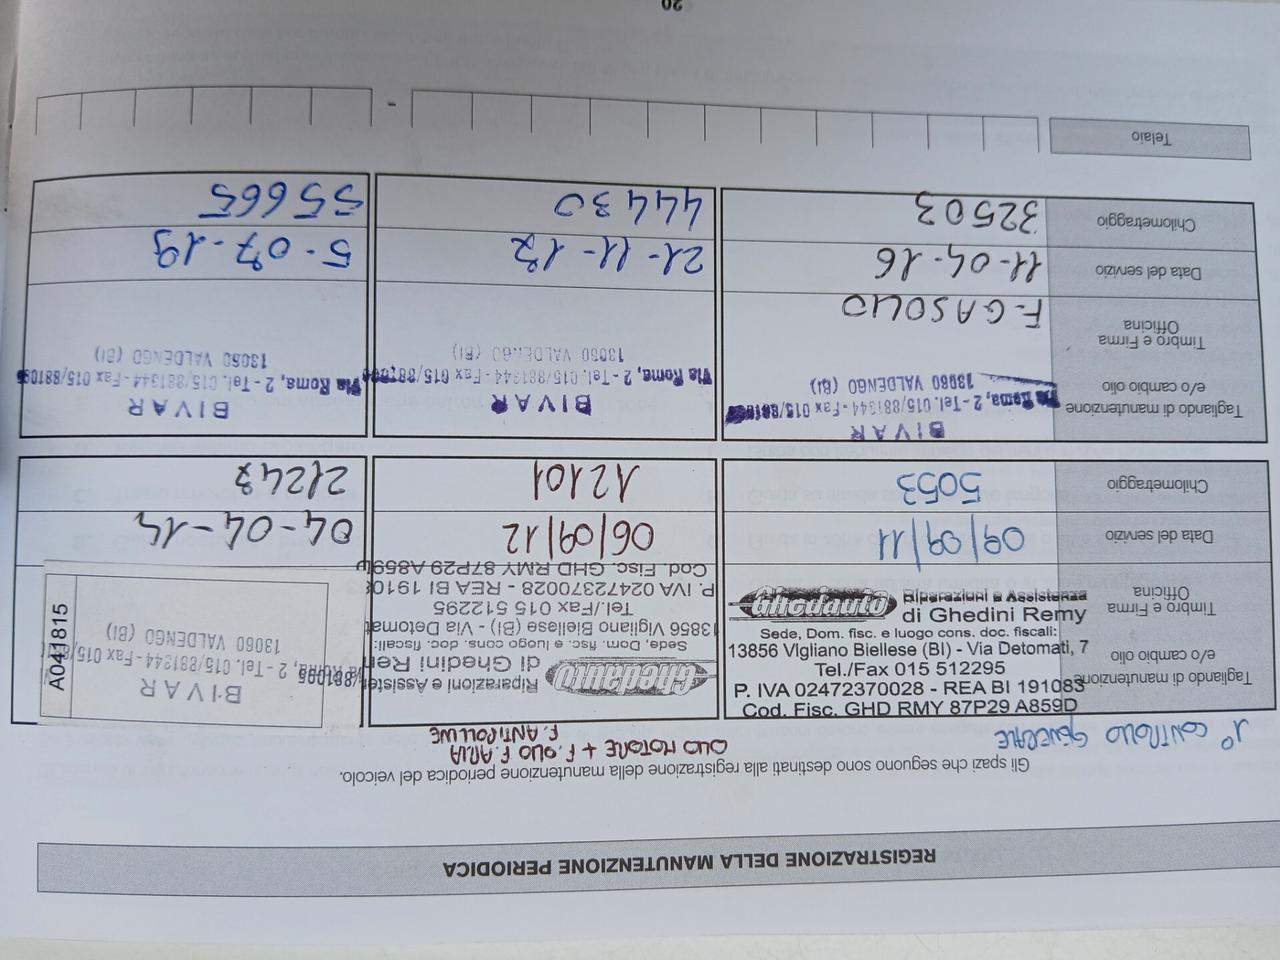 REGISTRAZIONE DELLA MANUTENZIONE PERIODICA
Gli spazi che seguono sono destinati alla registrazione della manutenzione periodica del veicolo.
1° CONTROLLO GENERALE
OLIO MOTORE + F. OLIO F. ARIA
F. ANTIPOLLINE
Tagliando di manutenzione
e/o cambio olio
Timbro e Firma
Officina
Ghedauto
Riparazioni e Assistenza
di Ghedini Remy
Sede, Dom. fisc. e luogo cons. doc. fiscali:
13856 Vigliano Biellese (BI) - Via Detomati, 7
Tel./Fax 015 512295
P. IVA 02472370028 - REA BI 191083
Cod. Fisc. GHD RMY 87P29 A859D
Ghedauto
Riparazioni e Assisten
di Ghedini Rem
Sede, Dom. fisc. e luogo cons. doc. fiscali:
13856 Vigliano Biellese (BI) - Via Detomat
Tel./Fax 015 512295
P. IVA 02472370028 - REA BI 19108
Cod. Fisc. GHD RMY 87P29 A859
BIVAR
Via Roma, 2 - Tel. 015/881344 - Fax 015/881095
13060 VALDENGO (BI)
A041815
Data del servizio
09/09/11
06/09/12
04-04-14
Chilometraggio
5053
12101
21247
Tagliando di manutenzione
e/o cambio olio
Timbro e Firma
Officina
BIVAR
Via Roma, 2 - Tel. 015/881344 - Fax 015/881095
13060 VALDENGO (BI)
F. GASOLIO
BIVAR
Via Roma, 2 - Tel. 015/881344 - Fax 015/881095
13060 VALDENGO (BI)
BIVAR
Via Roma, 2 - Tel. 015/881344 - Fax 015/88109
13060 VALDENGO (BI)
Data del servizio
11-04-16
21-11-17
5-07-19
Chilometraggio
32503
44430
55665
Telaio
-
20